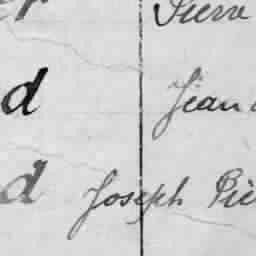 Pierre
d Jean
d Joseph Pie